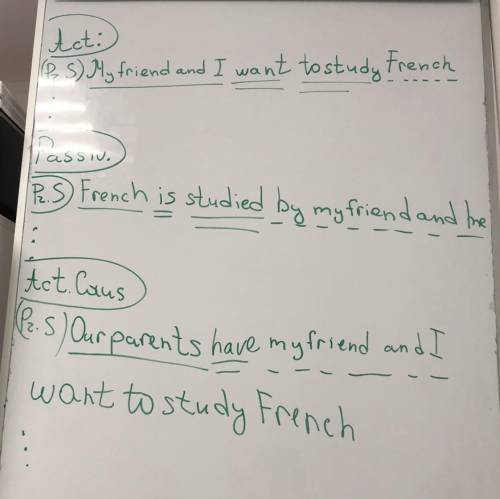 Act:
(Pr. S) My friend and I want to study French
Passiv.
Pr. S) French is studied by my friend and me
Act. Caus
(Pr. S) Our parents have my friend and I
want to study French